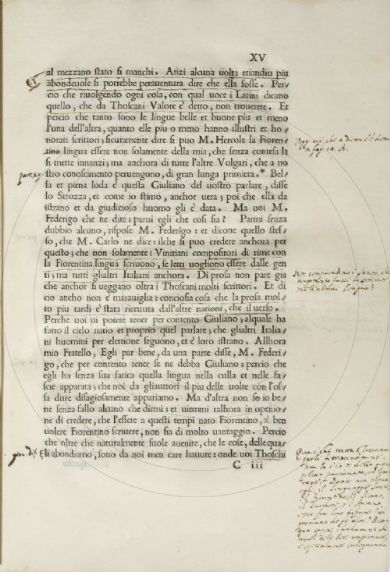 XV
al mezzano stato si manchi. Anzi alcuna uolta etiandio piu
abondeuole si potrebbe perauentura dire che ella fosse. Per/
cio che riuolgendo ogni cosa, con qual uoce i Latini dicano
quello, che da Thoscani Valore è detto, non trouerete. Et
percio che tanto sono le lingue belle et buone piu et meno
l'una dell'altra, quanto elle piu o meno hanno illustri et ho/
norati scrittori; sicuramente dire si puo M. Hercole la Fioren/
tina lingua essere non solamente della mia, che senza contesa la
si mette innanzi; ma anchora di tutte l'altre Volgari, che a no/
stro conoscimento peruengono, di gran lunga primiera. Bel/
la et piena loda è questa Giuliano del uostro parlare, disse
lo Strozza, et come io stimo, anchor uera; poi che ella da
istrano et da giudicioso huomo gli è data. Ma uoi M.
Federigo che ne dite: parui egli che cosi sia? Parmi senza
dubbio alcuno, rispose M. Federigo: et dicone quello stes/
so, che M. Carlo ne dice: ilche si puo credere anchora per
questo; che non solamente i Vinitiani compositori di rime con
la Fiorentina lingua scriuono, se letti uogliono essere dalle gen
ti; ma tutti glialtri Italiani anchora. Di prosa non pare gia
che anchor si ueggano oltra i Thoscani molti scrittori. Et di
cio ancho non è marauiglia: conciosia cosa che la prosa mol/
to piu tardi è stata riceuuta dall'altre nationi, che il uerso.
Perche uoi ui potete tener per contento Giuliano; alquale ha
fatto il cielo natio et proprio quel parlare; che glialtri Italia/
ni huomini per elettione seguono, et è loro istrano. Allhora
mio Fratello, Egli pur bene, da una parte disse, M. Federi/
go, che per contento tener se ne debba Giuliano: percio che
egli ha senza sua fatica quella lingua nella culla et nelle fa/
scie apparata; che noi da gliauttori il piu delle uolte con l'os/
sa dure disagiosamente appariamo. Ma d'altra non so io be/
ne senza fallo alcuno che dirmi: et uiemmi talhora in openio/
ne di credere, che l'essere a questi tempi nato Fiorentino, al ben
uolere Fiorentino scriuere, non sia di molto uantaggio. Percio
che oltre che naturalmente suole auenire, che le cose, delle quali
abondiamo, sono da noi men care hauute: onde uoi Thoschi
C iii